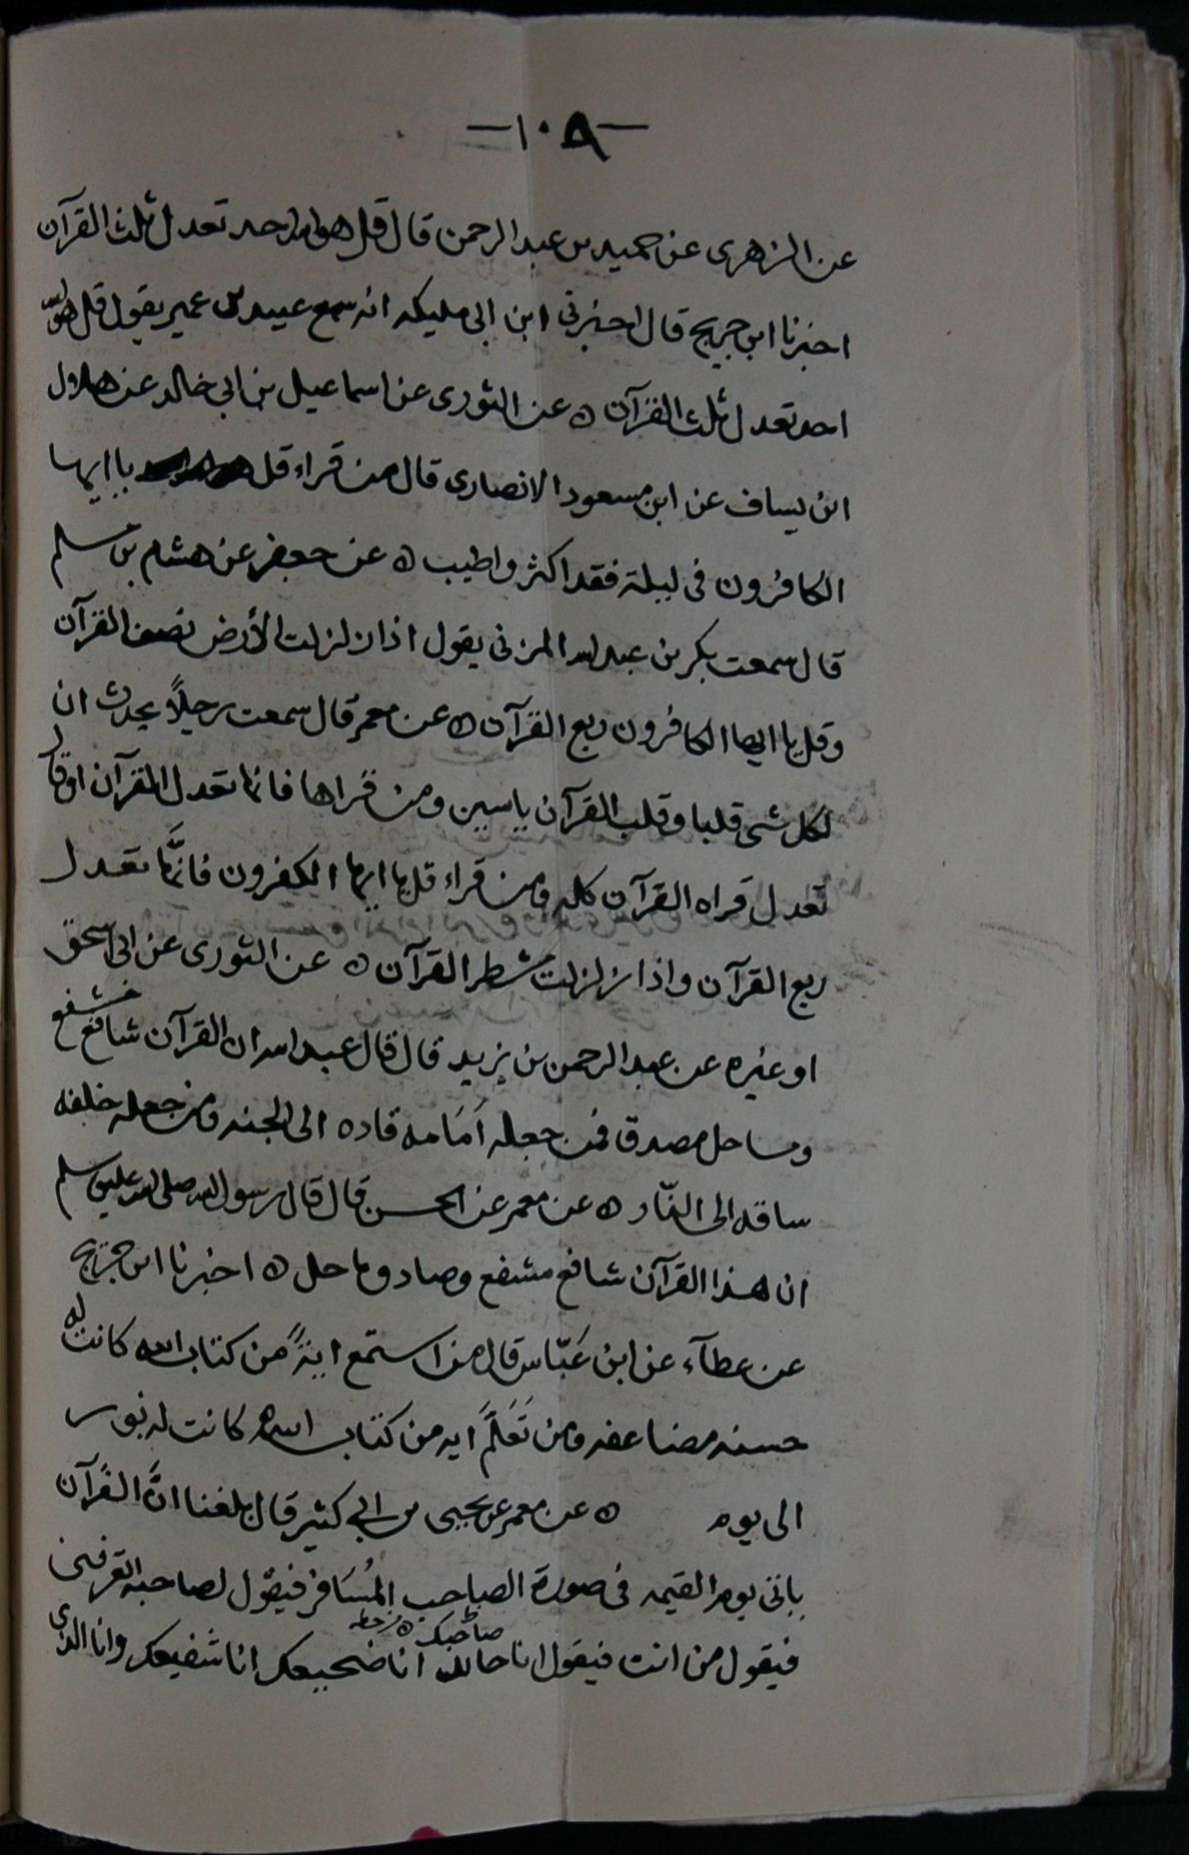 -١٠٨-
عن الزهرى عن حميد بن عبد الرحمن قال قل هو الله احد تعدل ثلث القرآن
اخبرنا ابن جريج قال اخبرنى ابن ابى مليكه انه سمع عبيد بن عمير يقول قل هو الله
احد تعدل ثلث القرآن ٥ عن الثورى عن اسماعيل بن ابى خالد عن هلال
ابن يساف عن ابن مسعود الانصارى قال من قراء قل ياايها
الكافرون فى ليلة فقد اكثر واطيب ٥ عن جعفر عن هشام بن مسلم
قال سمعت بكر بن عبد الله المزنى يقول اذا زلزلت الأرض نصف القرآن
وقل يا ايها الكافرون ربع القرآن ٥ عن معمر قال سمعت رجلاً يحدث ان
لكل شى قلبا وقلب القرآن ياسين ومن قراها فانها تعدل القرآن او قال
تعدل قراه القرآن كله ومن قراء قل يا ايها الكفرون فانَّها تعدل
ربع القرآن واذا زلزلت شطر القرآن ٥ عن الثورى عن ابى اسحق
او غيره عن عبد الرحمن بن يزيد قال قال عبد الله ان القرآن شافع مشفع
وماحل مصدق فمن جعله اَمَامه قاده الى الجنه ومن جعله خلفه
ساقه الى النّار ٥ عن معمر عن الحسن قال قال رسول الله صلى الله عليه وسلم
ان هذا القرآن شافع مشفع وصادق ماحل ٥ اخبرنا ابن جريج
عن عطآء عن ابن عَبّاس قال من استمع ايةً من كتاب الله كانت له
حسنه مضاعفه ومن تَعَلَّمَ ايه من كتاب الله كانت له نور
الى يوم ٥ عن معمر عن يحيى بن ابى كثير قال بلغنا انَّ القرآن
ياتى يوم القيمه فى صورة الصاحب المُسَافر فيقول لصاحبه اتعرفنى
فيقول من انت فيقول انا صاحبك انا ضجيعك انا شفيعك وانا الذى